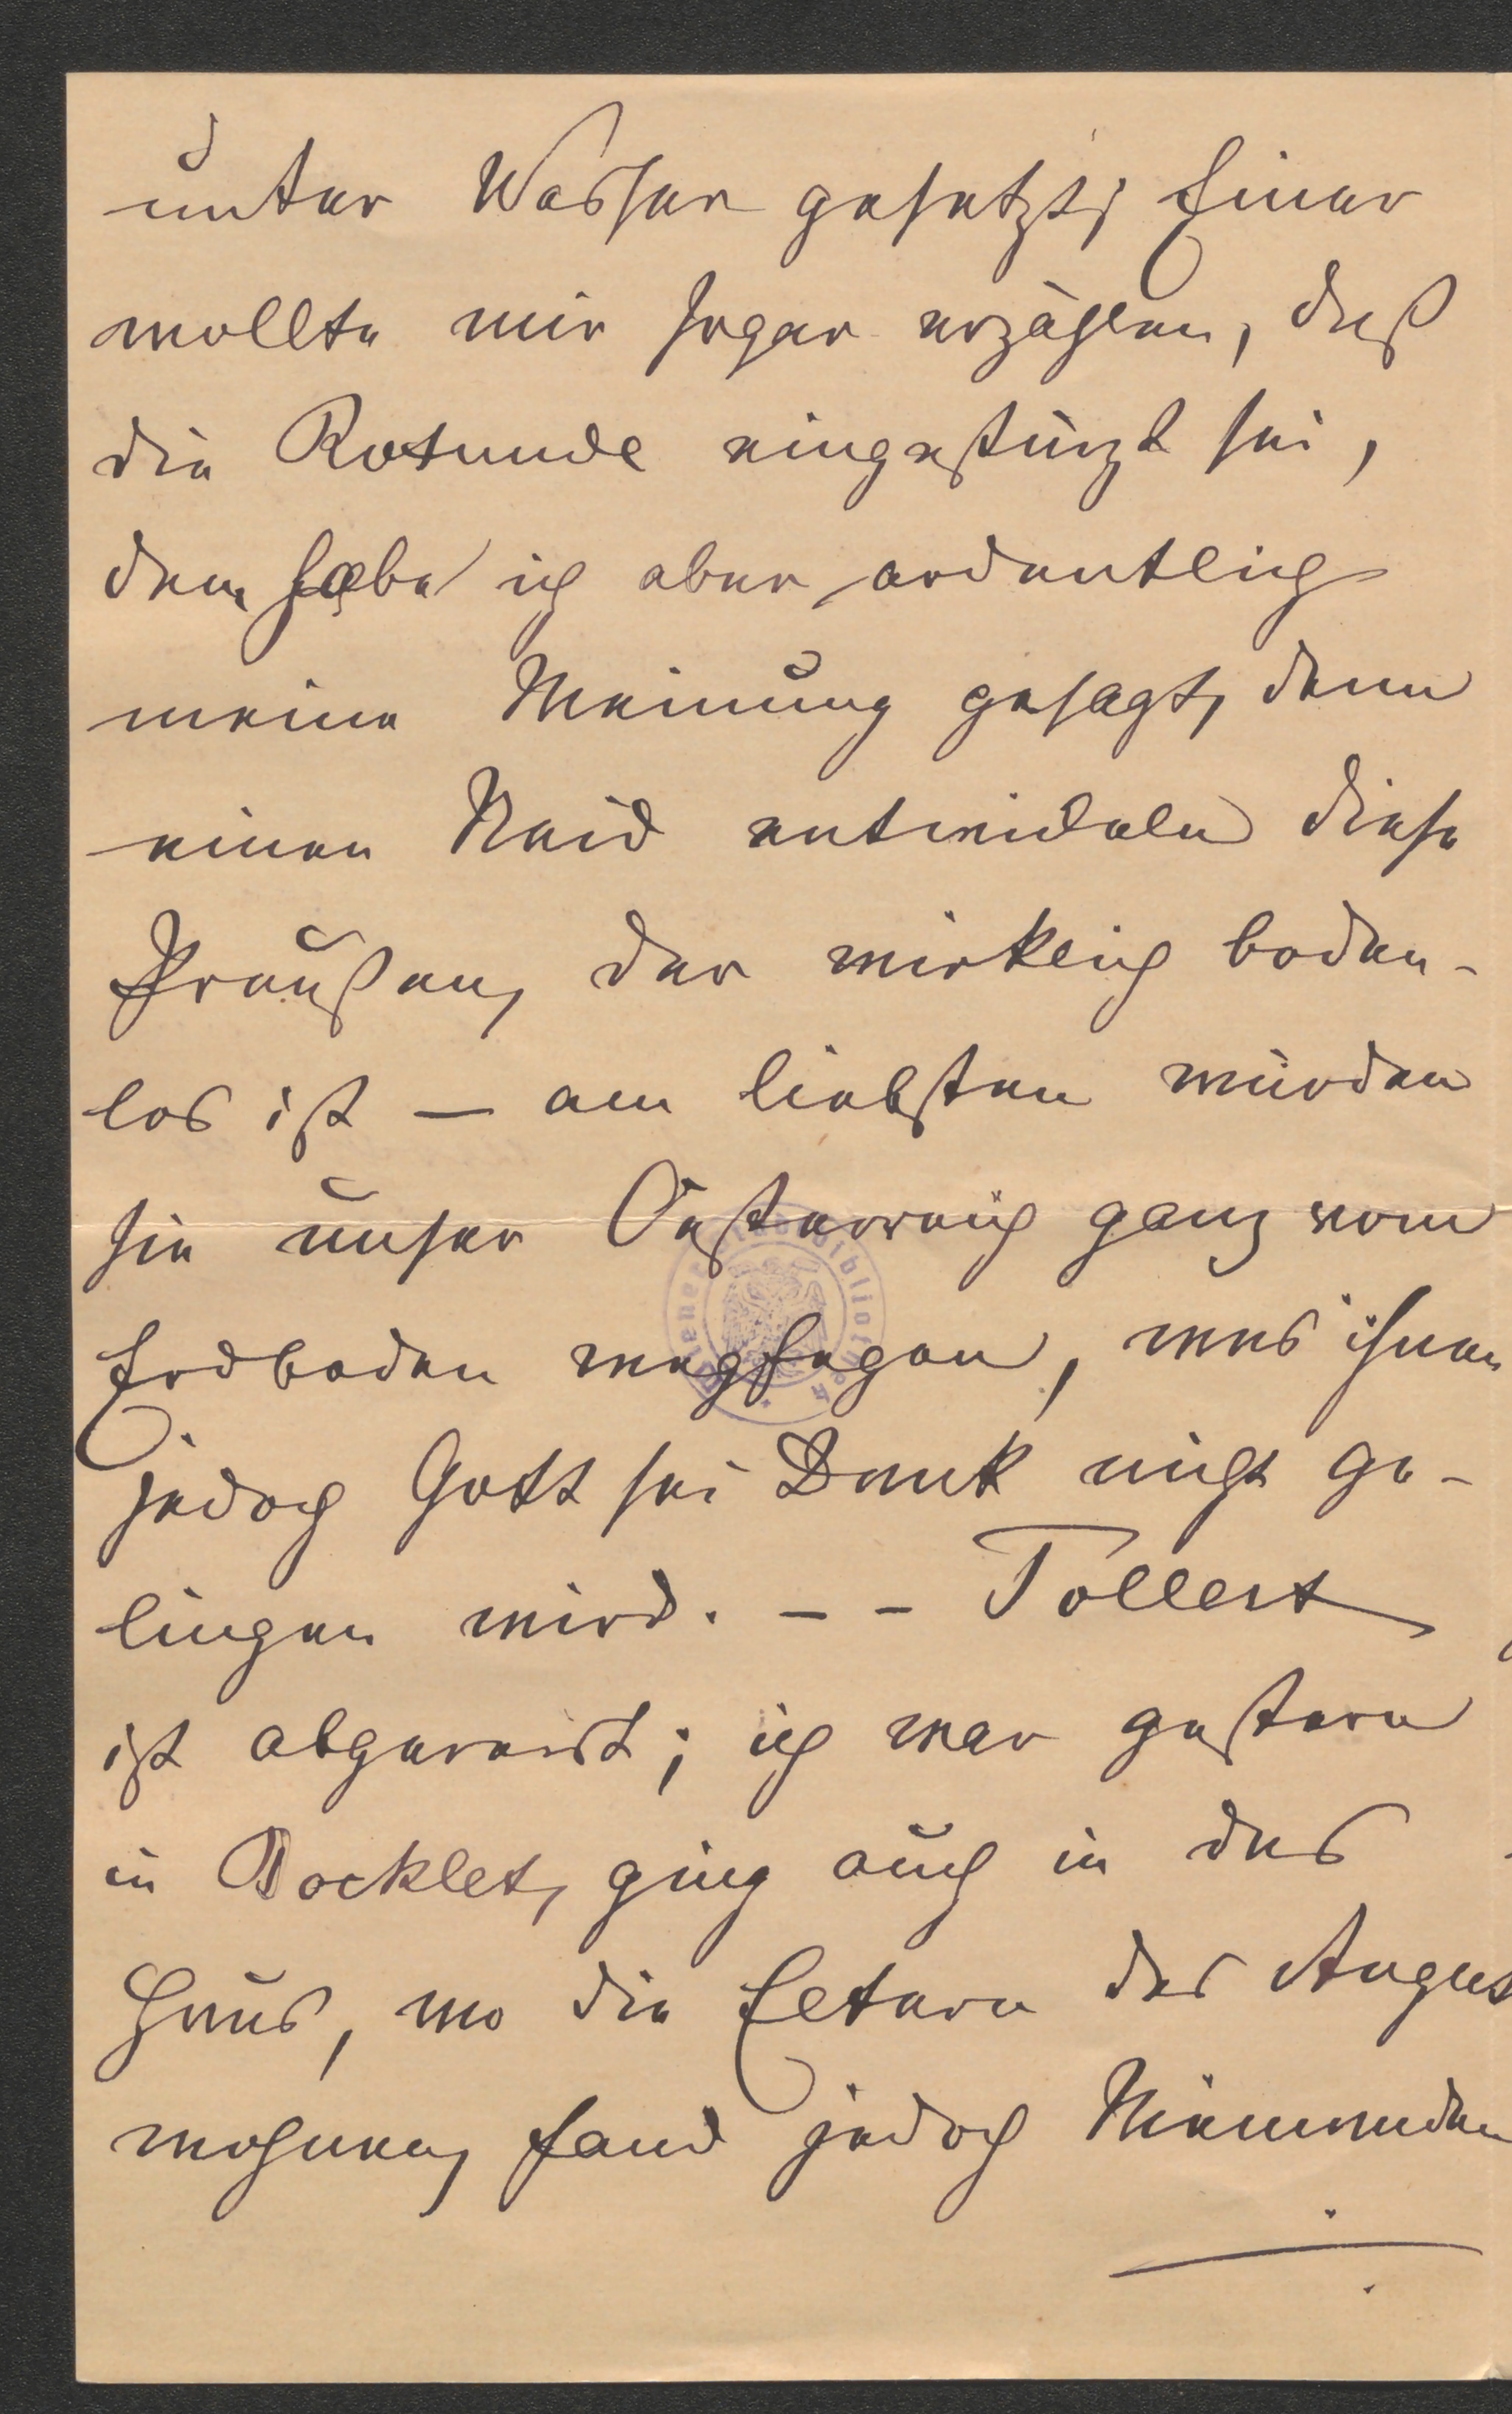 unter Wasser gesetzt; Einer
wollte mir sogar erzählen, daß
die Rotunde eingestürzt sei,
dem habe ich aber ordentlich
meine Meinung gesagt, denn
einen Neid entwickeln diese
Preußen, der wirklich boden-
los ist – am liebsten würden
sie unser Oesterreich ganz vom
Erdboden wegfegen, was ihnen
jedoch Gott sei Dank nicht ge-
lingen wird. – – Tollert
ist abgereist; ich war gestern
in Bocklet, ging auch in das
Haus, wo die Eltern des August
wohnen, fand jedoch Niemanden